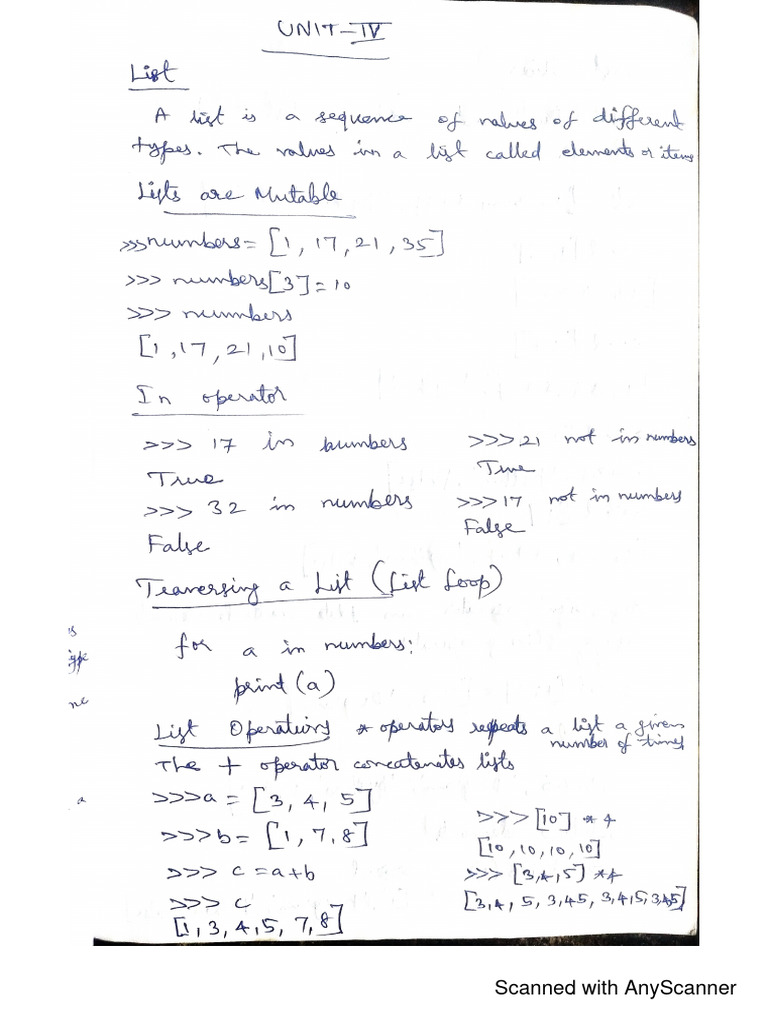 UNIT-IV
List
A list is a sequence of values of different
types. The values in a list called elements or items
Lists are Mutable
>>>numbers= [1, 17, 21, 35]
>>> numbers[3]=10
>>> numbers
[1,17,21,10]
In operator
>>> 17 in numbers
True
>>> 32 in numbers
False
>>>21 not in numbers
True
>>>17 not in numbers
False
Traversing a List (List Loop)
for a in numbers:
print(a)
List Operations * operators repeats a list a given
number of times
The + operator concatenates lists
>>>a = [3, 4, 5]
>>>b= [1, 7, 8]
>>> c =a+b
>>> c
[1, 3, 4, 5, 7, 8]
>>> [10] *4
[10, 10, 10, 10]
>>> [3,4,5] *4
[3,4, 5, 3,45, 3,4,5,3,45]
is
ype
ne
a
Scanned with AnyScanner